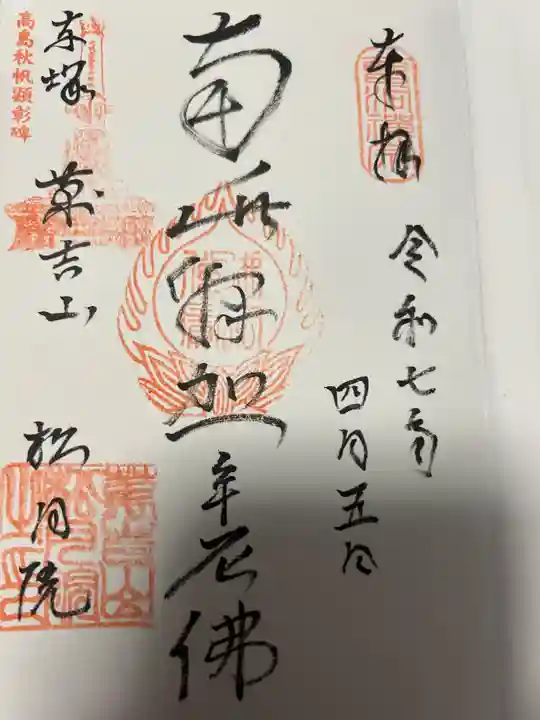 奉拝
令和七年
四月五日
南無釈迦牟尼佛
赤塚
萬吉山
松月院
高島秋帆顕彰碑